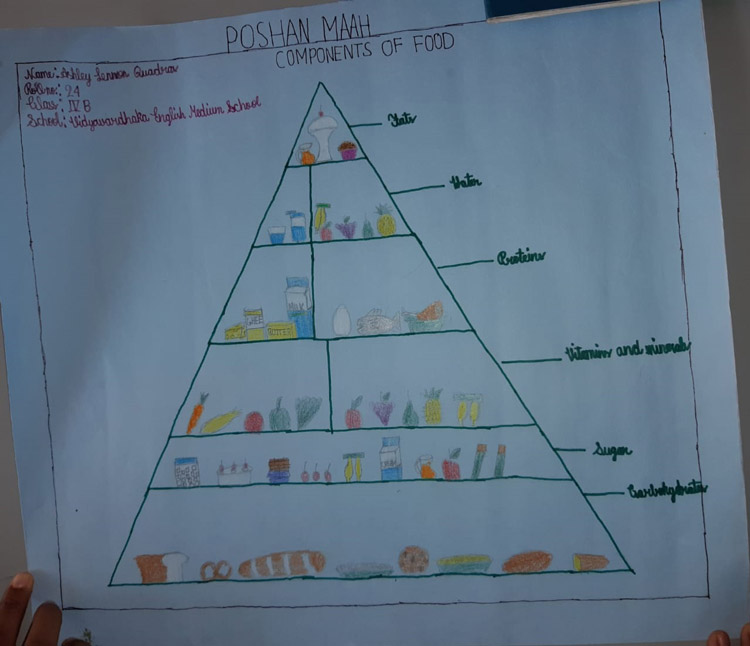 POSHAN MAAH
COMPONENTS OF FOOD
Name: Ashley Lennon Quadras
Roll no: 24
Class: IV B
School: Vidyavardhaka English Medium School
Fats
Water
Proteins
Vitamins and minerals
Sugar
Carbohydrates
MILK